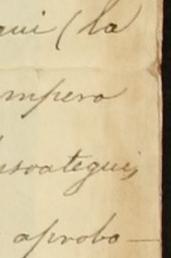 qui (la
mpero
soategui,
aprobo—